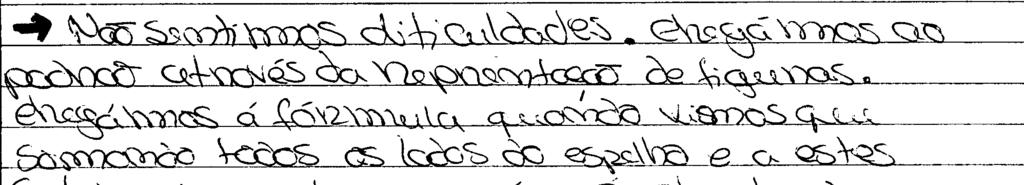 → Não sentimos dificuldades. Chegámos ao
padrão através da representação de figuras.
Chegámos á fórmula quando vimos que
somando todos os lados do espelho e a estes